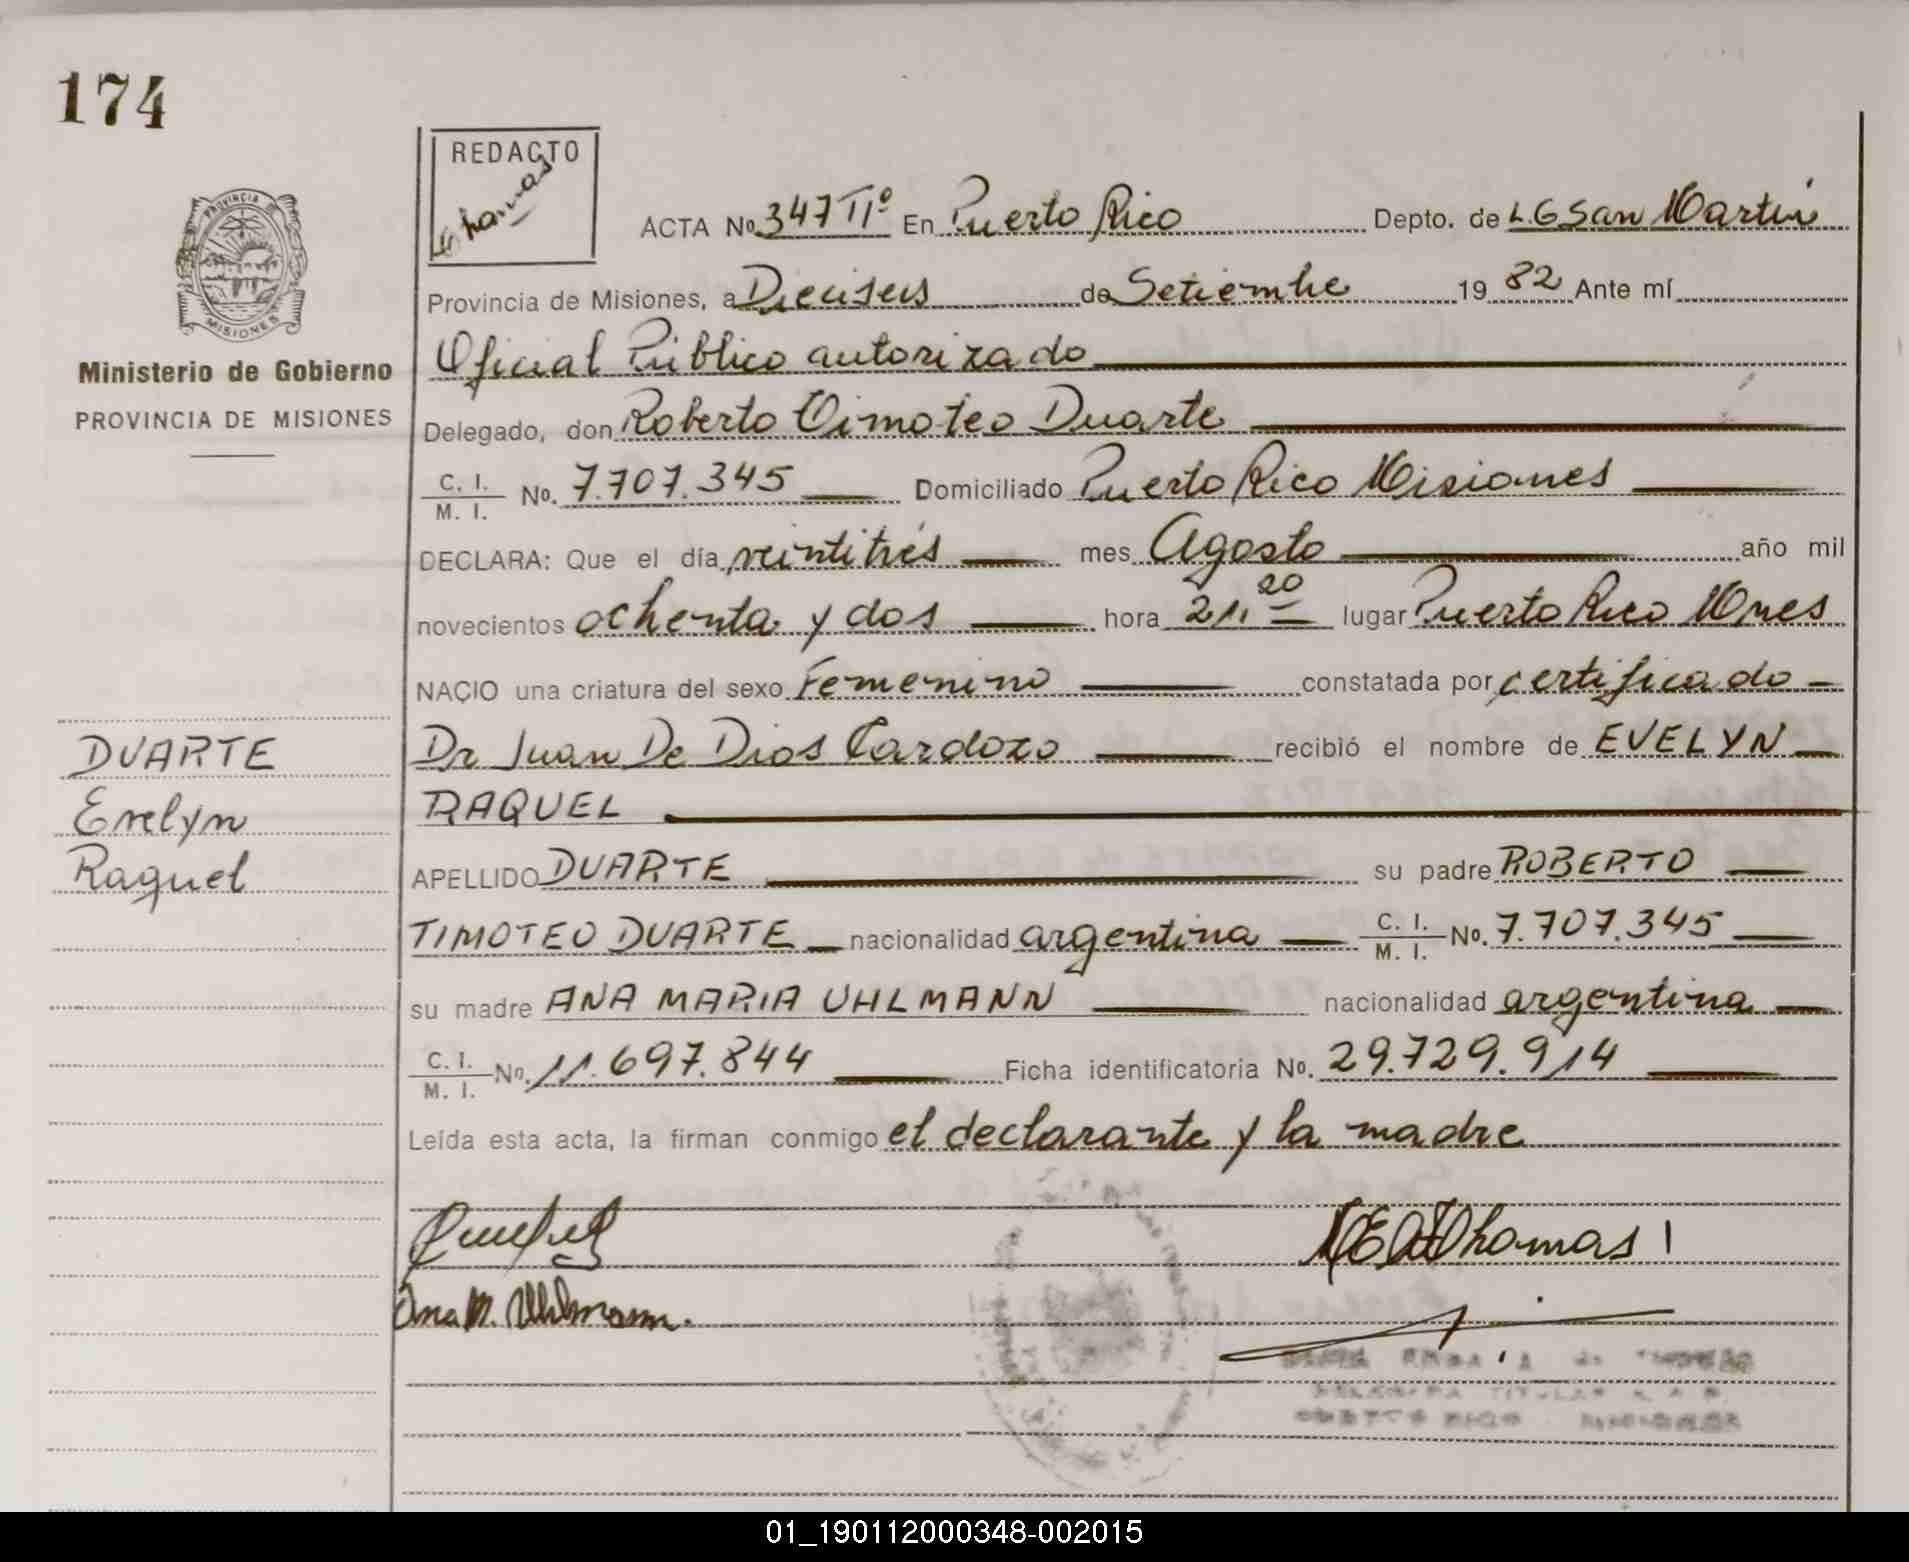 174
REDACTO
Thomas
PROVINCIA DE
MISIONES
Ministerio de Gobierno
PROVINCIA DE MISIONES
ACTA No. 347 IIº En Puerto Rico Depto. de L. G San Martin
Provincia de Misiones, a Dieciseis de Setiembre 19 82 Ante mí
Oficial Público autorizado
Delegado, don Roberto Timoteo Duarte
C. I. / M. I. No. 7.707.345 Domiciliado Puerto Rico Misiones
DECLARA: Que el día veintitrés mes Agosto año mil
novecientos ochenta y dos hora 21,20 lugar Puerto Rico Mnes
NACIO una criatura del sexo Femenino constatada por certificado
Dr Juan De Dios Cardozo recibió el nombre de EVELYN
RAQUEL
DUARTE
Evelyn
Raquel
APELLIDO DUARTE su padre ROBERTO
TIMOTEO DUARTE nacionalidad argentina C. I. / M. I. No. 7.707.345
su madre ANA MARIA UHLMANN nacionalidad argentina
C. I. / M. I. No. 11.697.844 Ficha identificatoria No. 29.729.914
Leída esta acta, la firman conmigo el declarante y la madre
Thomas
Ana M. Uhlmann.
01_190112000348-002015